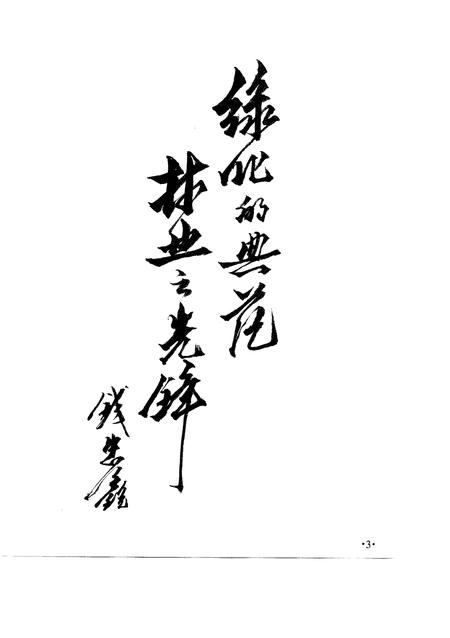 绿化的典范
林业之先锋
钱忠鑫
·3·